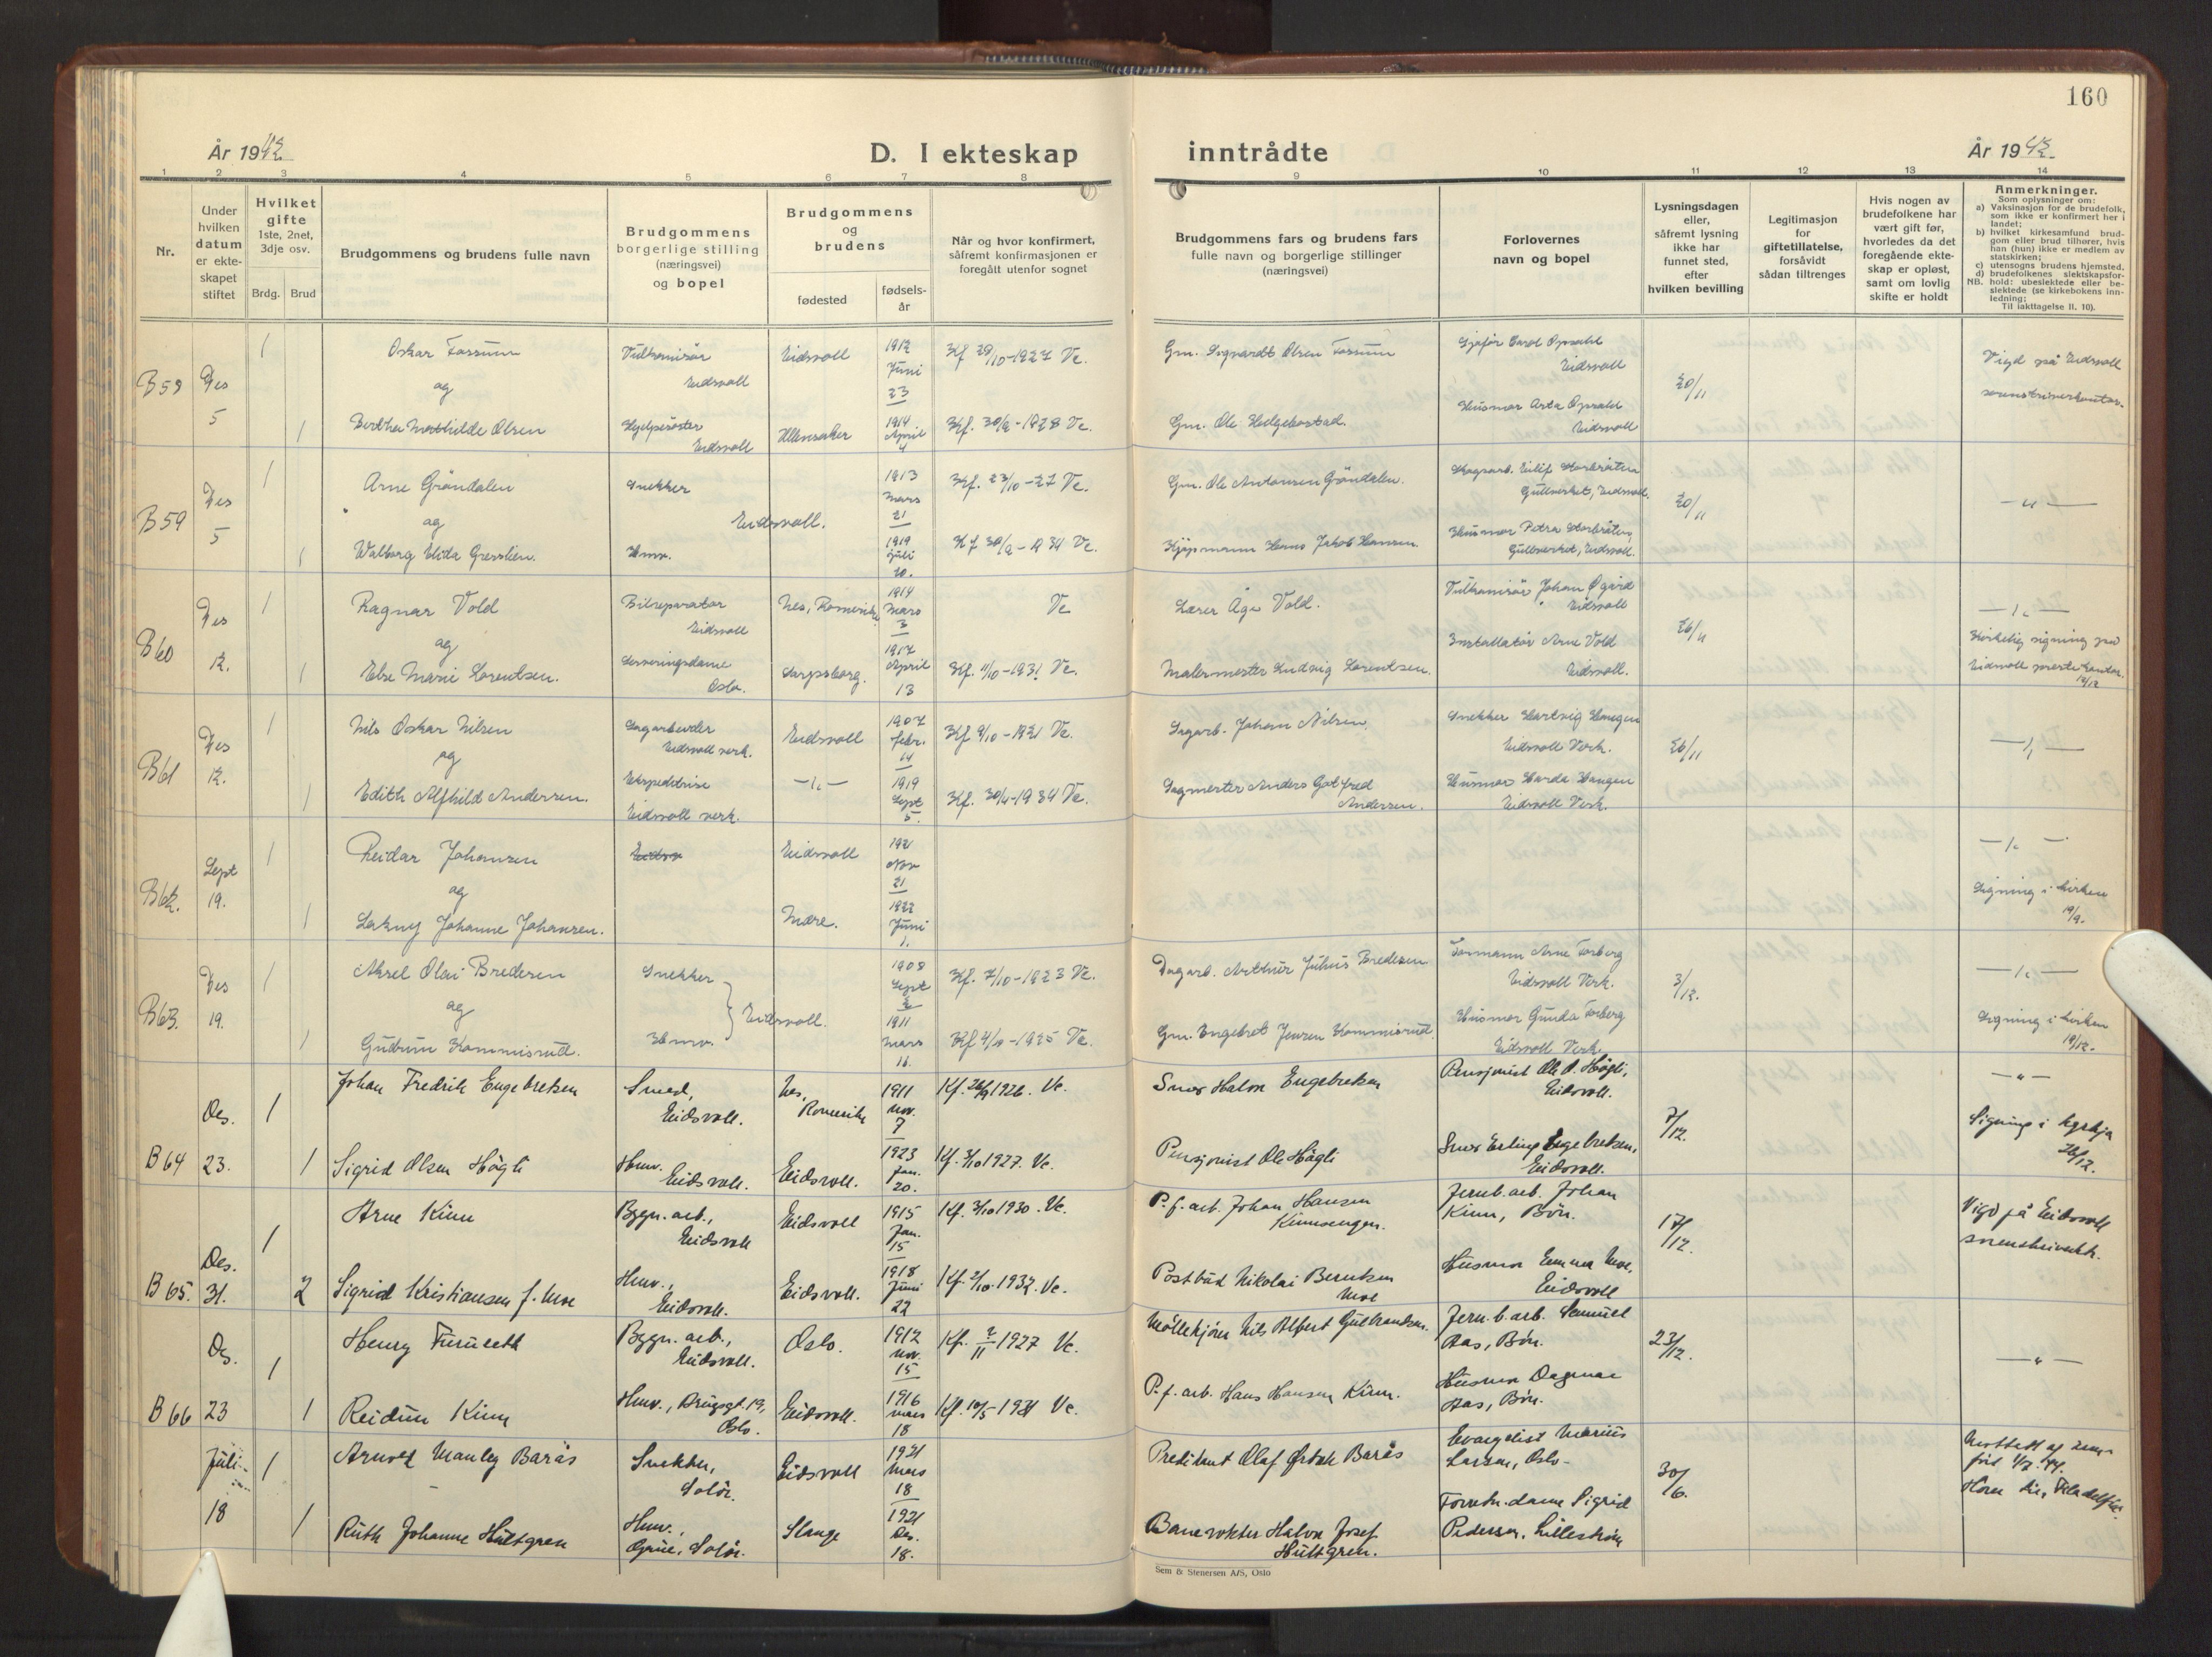 160
År 1942
D. I ekteskap inntrådte
År 1942
1 2 3 4 5 6 7 8 9 10 11 12 13 14
Nr.
Under hvilken datum er ekte-skapet stiftet
Hvilket gifte 1ste, 2net, 3dje osv.
Brdg. Brud
Brudgommens og brudens fulle navn
Brudgommens borgerlige stilling (næringsvei) og bopel
Brudgommens og brudens
fødested
fødsels-år
Når og hvor konfirmert, såfremt konfirmasjonen er foregått utenfor sognet
Brudgommens fars og brudens fars fulle navn og borgerlige stillinger (næringsvei)
Forlovernes navn og bopel
Lysningsdagen eller, såfremt lysning ikke har funnet sted, efter hvilken bevilling
Legitimasjon for giftetillatelse, forsåvidt sådan tiltrenges
Hvis nogen av brudefolkene har vært gift før, hvorledes da det foregående ekte-skap er opløst, samt om lovlig skifte er holdt
Anmerkninger.
Som oplysninger om:
a) Vaksinasjon for de brudefolk, som ikke er konfirmert her i landet;
b) hvilket kirkesamfund brud-gom eller brud tilhører, hvis han (hun) ikke er medlem av statskirken;
c) utensogns brudens hjemsted.
d) brudefolkenes slektskapsfor-hold: ubeslektede eller be-slektede (se kirkebokens inn-ledning;
NB.
Til iakttagelse II. 10).
B58 Des 5
1 Oskar Fossum Vulkanisør Eidsvoll Eidsvoll 1912 Juni 23 Kf 29/10-1927 Ve.
Gm. Sigvardt Olsen Fossum
Eidsvoll
20/11
Vigd på Eidsvoll
og
1 Bertha Mathilde Olsen Eidsvoll Ullensaker 1914 April 4 Kf. 30/9-1928 Ve.
Gm. Ole Helgebostad.
Eidsvoll
B59 Des 5
1 Arne Grøndalen Snekker 1913 Mars 21 Kf. 23/10-27 Ve.
Gm. Ole Antonsen Grøndalen.
Gullverket, Eidsvoll.
20/11
— " —
og
Eidsvoll.
1 Walborg Elida Gresslien. Hmv. 1919 Juli 20. Kf 30/9-1934 Ve.
Kjøpmann Hans Jakob Hansen.
Gullverket, Eidsvoll.
B60 Des 12.
1 Ragnar Vold Bilreparatør Eidsvoll Nes, Romerike 1914 Mars 3 Ve
Lærer Åge Vold.
Vulkanisør Johan Øgård Eidsvoll
26/11
— " —
Kirkelig signing på
Eidsvoll prestekontor.
og
1 Else Marie Lorentsen. Serveringsdame Oslo. Sarpsborg. 1917 April 13 Kf. 11/10-1931 Ve.
Malermester Ludvig Lorentsen.
Installatør Arne Vold Eidsvoll.
B61 Des 12.
1 Nils Oskar Nilsen Sagarbeider Eidsvoll verk. Eidsvoll 1907 febr. 14 Kf 9/10-1921 Ve.
Sagarb. Johan Nilsen.
Snekker Hartvig Haugen Eidsvoll Verk.
26/11
— " —
og
1 Edith Alfhild Andersen. Ekspeditrise Eidsvoll verk. — " — 1919 Sept 5. 1934 Ve.
Sagmester Anders Gotfred Andersen.
Haugen Eidsvoll Verk.
B62. Sept 19.
1 Reidar Johansen Eidsvoll 1921 Nov 21
— " —
Signing i kirken 19/9.
og
1 Johanne Johansen. Mære. 1922 Juni 1.
B63. Des 19.
1 Aksel Olai Bredesen Snekker 1908 Sept 2 Kf. 7/10-1923 Ve.
Dagarb. Arthur Julius Bredesen
Formann Arne Forberg Eidsvoll Verk.
3/12.
— " —
Signing i kirken 19/12.
og
Eidsvoll.
1 Gudrun Kommisrud. Hmv. 1911 Mars 16. Kf 4/10-1925 Ve.
Gm. Engebret Jensen Kommisrud
Husmor Gunda Forberg Eidsvoll Verk.
B64 Des. 23.
1 Johan Fredrik Engebretsen Smed, Eidsvoll. Nes, Romerike 1911 Nov. 7 Kf. 26/9 1926. Ve.
Snor Halvor Engebretsen
Pensjonist Ole A. Høgli, Eidsvoll.
7/12.
— " —
Signing i kyrkja 26/12.
1 Sigrid Olsen Høgli Hmv. Eidsvoll. Eidsvoll. 1923 Jan. 20. Kf. 3/10 1927. Ve.
Pensjonist Ole Høgli
Erling Engebretsen, Eidsvoll.
B65. Des. 31.
1 Arne Kinn Bygn. arb., Eidsvoll Eidsvoll 1915 Jan. 15 Kf. 3/10 1930. Ve.
P.f. arb. Johan Hansen Kinnsengen.
Jernb. arb. Johan Kinn, Bøn.
17/12.
Vigd på Eidsvoll
2 Sigrid Kristiansen f. Moe Hmv., Eidsvoll. Eidsvoll. 1918 Juni 22 Kf. 2/10 1932. Ve.
Postbud Nikolai Berntsen Moe
Husmor Emma Moe, Eidsvoll
B66 Des. 23
1 Henry Furuseth Bygn. arb., Eidsvoll. Oslo. 1912 Nov. 15 Kf. 2/11 1927 Ve.
Møllekjører Nils Albert Gulbrandsen.
Jernb. arb. Samuel Aas, Bøn.
23/12.
— " —
1 Reidun Kinn Hmv., Brugsgt. 19, Oslo. Eidsvoll. 1916 mars 18 Kf. 10/5-1931 Ve.
P.f. arb. Hans Hansen Kinn.
Husmor Dagmar Aas, Bøn.
Juli 18
1 Arnold Manley Barås Snekker, Solør. Eidsvoll 1921 Mars 18
Predikant Olaf Barås
Evangelist Marius Larsen, Oslo
30/6.
1 Ruth Johanne Hultgren Hmv. Grue, Solør. Stange 1921 Des. 18.
Banevokter Halvor Josef Hultgren.
Forretn.dame Sigrid Pedersen, Lillestrøm
Sem & Stenersen A/S, Oslo